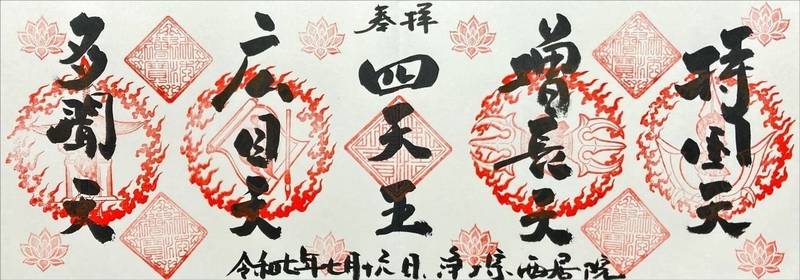 持国天
増長天
奉拝
四天王
広目天
多聞天
令和七年七月十六日、浄土宗西居院